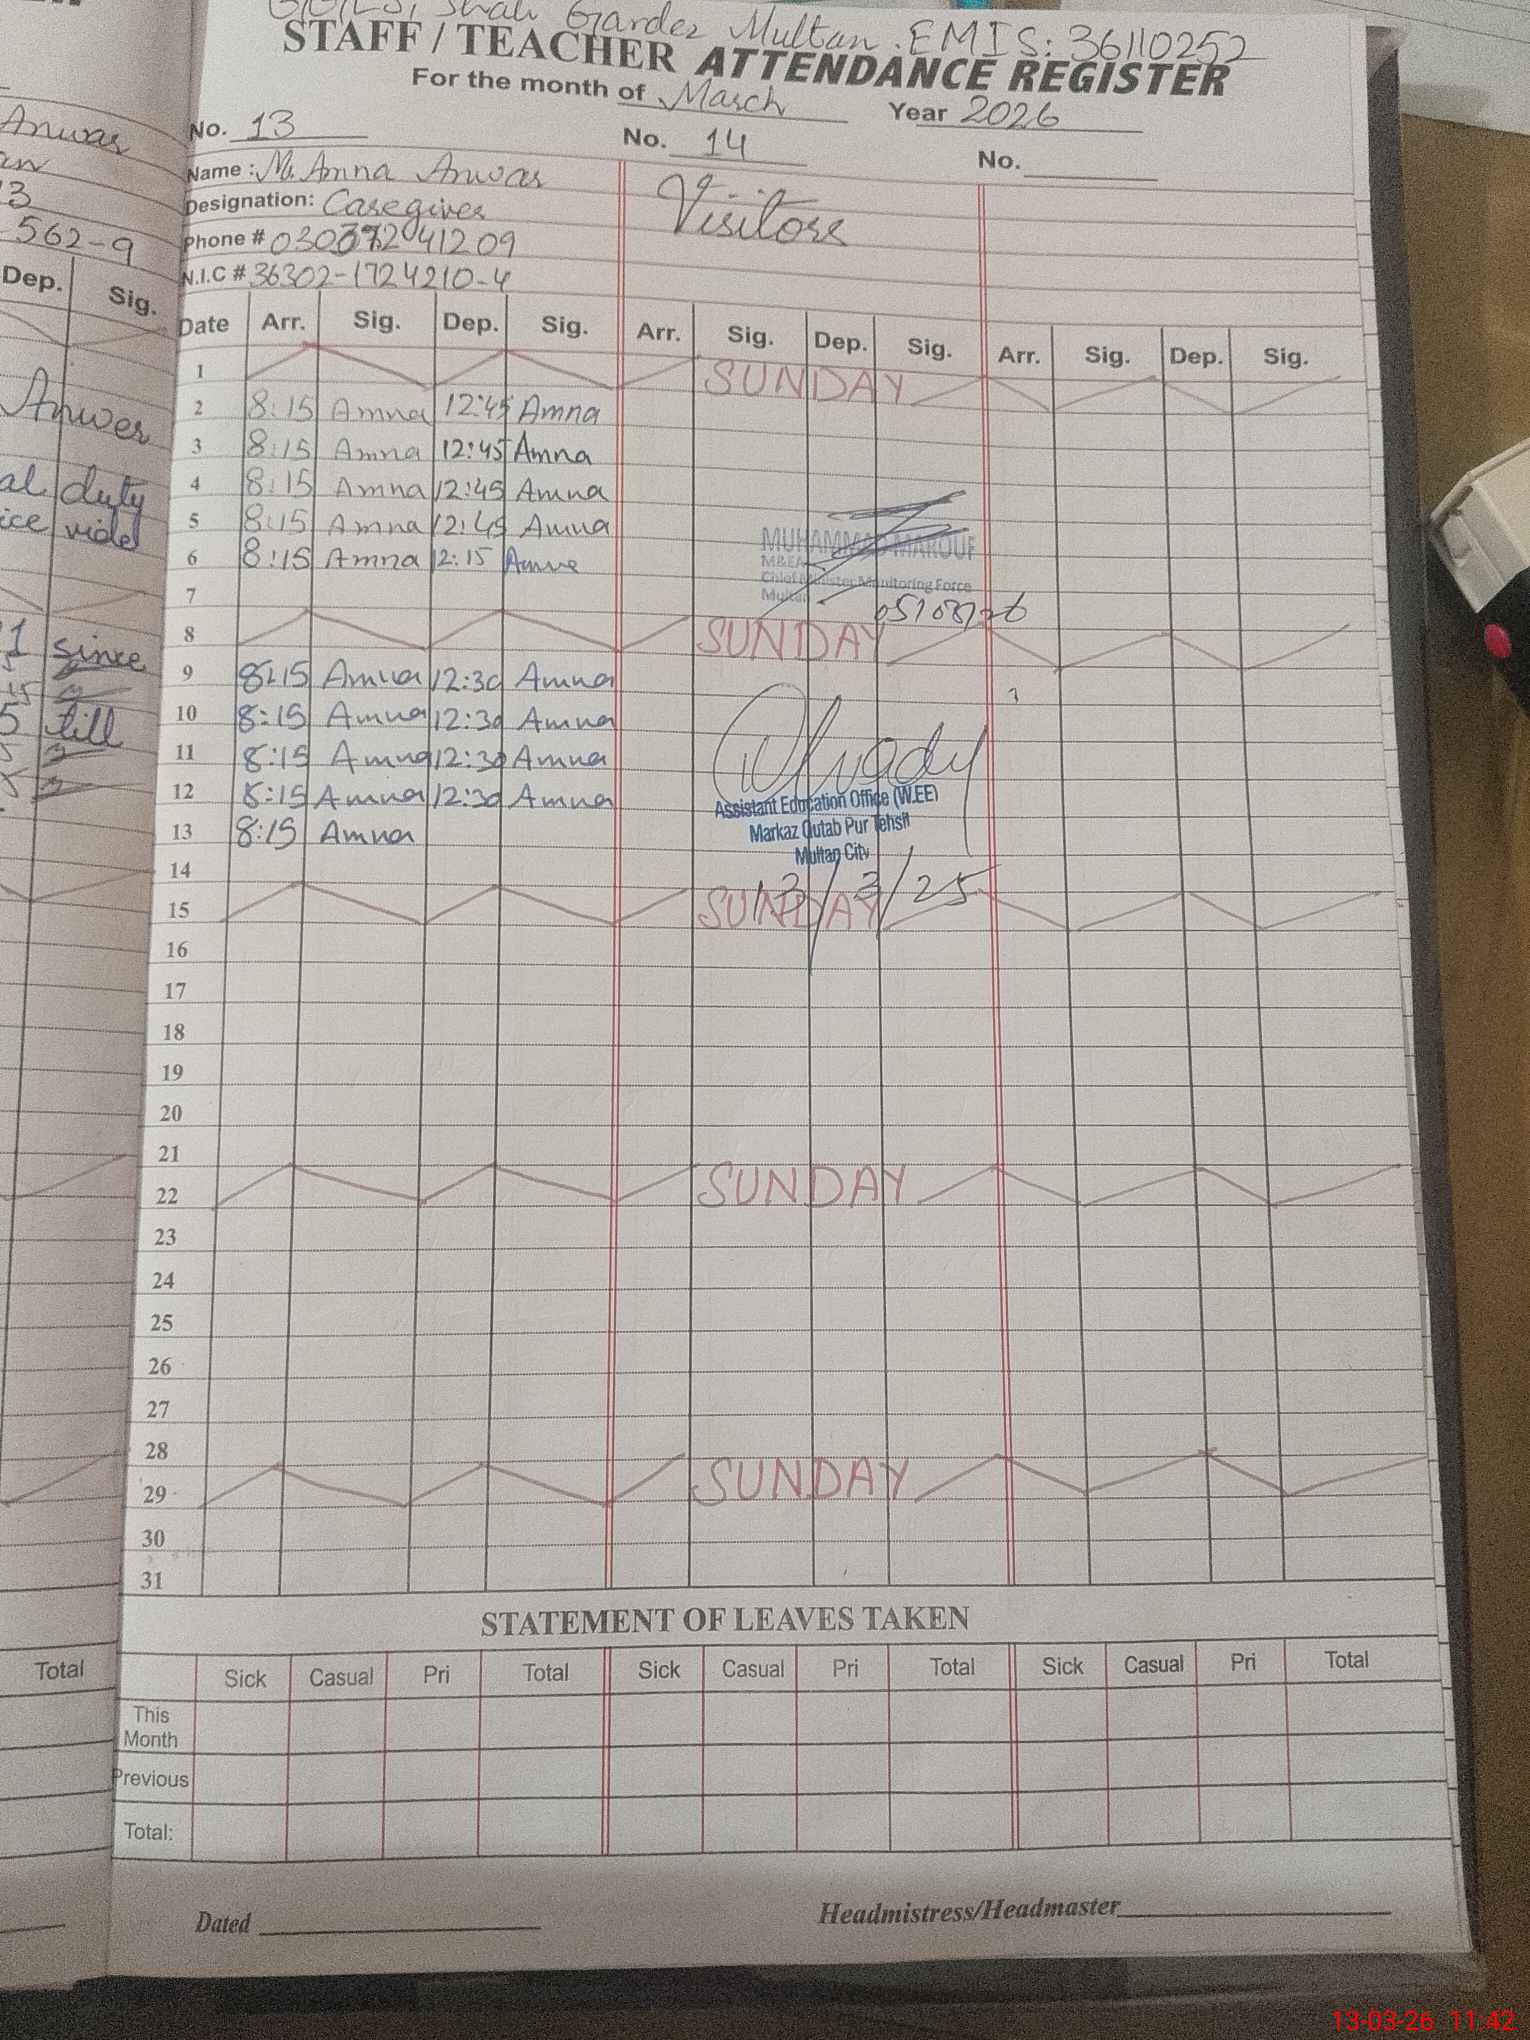 Shah Gardez Multan. EMIS: 36110252
STAFF / TEACHER ATTENDANCE REGISTER
For the month of March Year 2026
No. 13 No. 14 No.
Name: Ms. Amna Anwar Visitors
Designation: Caregiver
Phone #
N.I.C # 36302-1724210-4
Date Arr. Sig. Dep. Sig. Arr. Sig. Dep. Sig. Arr. Sig. Dep. Sig.
1 SUNDAY
2 8:15 Amna 12:45 Amna
3 8:15 Amna 12:45 Amna
4 8:15 Amna 12:45 Amna
5 8:15 Amna 12:45 Amna
MUHAMMAD MAROUF
6 8:15 Amna 12:15 Amna
M&EA
Chief Minister Monitoring Force
7
Multan
05/03/26
8 SUNDAY
9 8:15 Amna 12:30 Amna
10 8:15 Amna 12:30 Amna
11 8:15 Amna 12:30 Amna
12 8:15 Amna 12:30 Amna
Assistant Education Office (W.EE)
13 8:15 Amna
Markaz Qutab Pur Tehsil
Multan City
14
13/3/25
15 SUNDAY
16
17
18
19
20
21
22 SUNDAY
23
24
25
26
27
28
29 SUNDAY
30
31
STATEMENT OF LEAVES TAKEN
Sick Casual Pri Total Sick Casual Pri Total Sick Casual Pri Total
This
Month
Previous
Total:
Dated Headmistress/Headmaster
Anwar
13
562-9
Dep. Sig.
Anwer
duty
since
till
Total
13-03-26 11:42